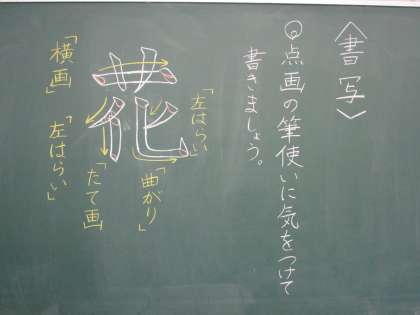 〈書写〉
◎点画の筆使いに気をつけて
書きましょう。
花
「左はらい」
「曲がり」
「たて画」
「横画」
「左はらい」